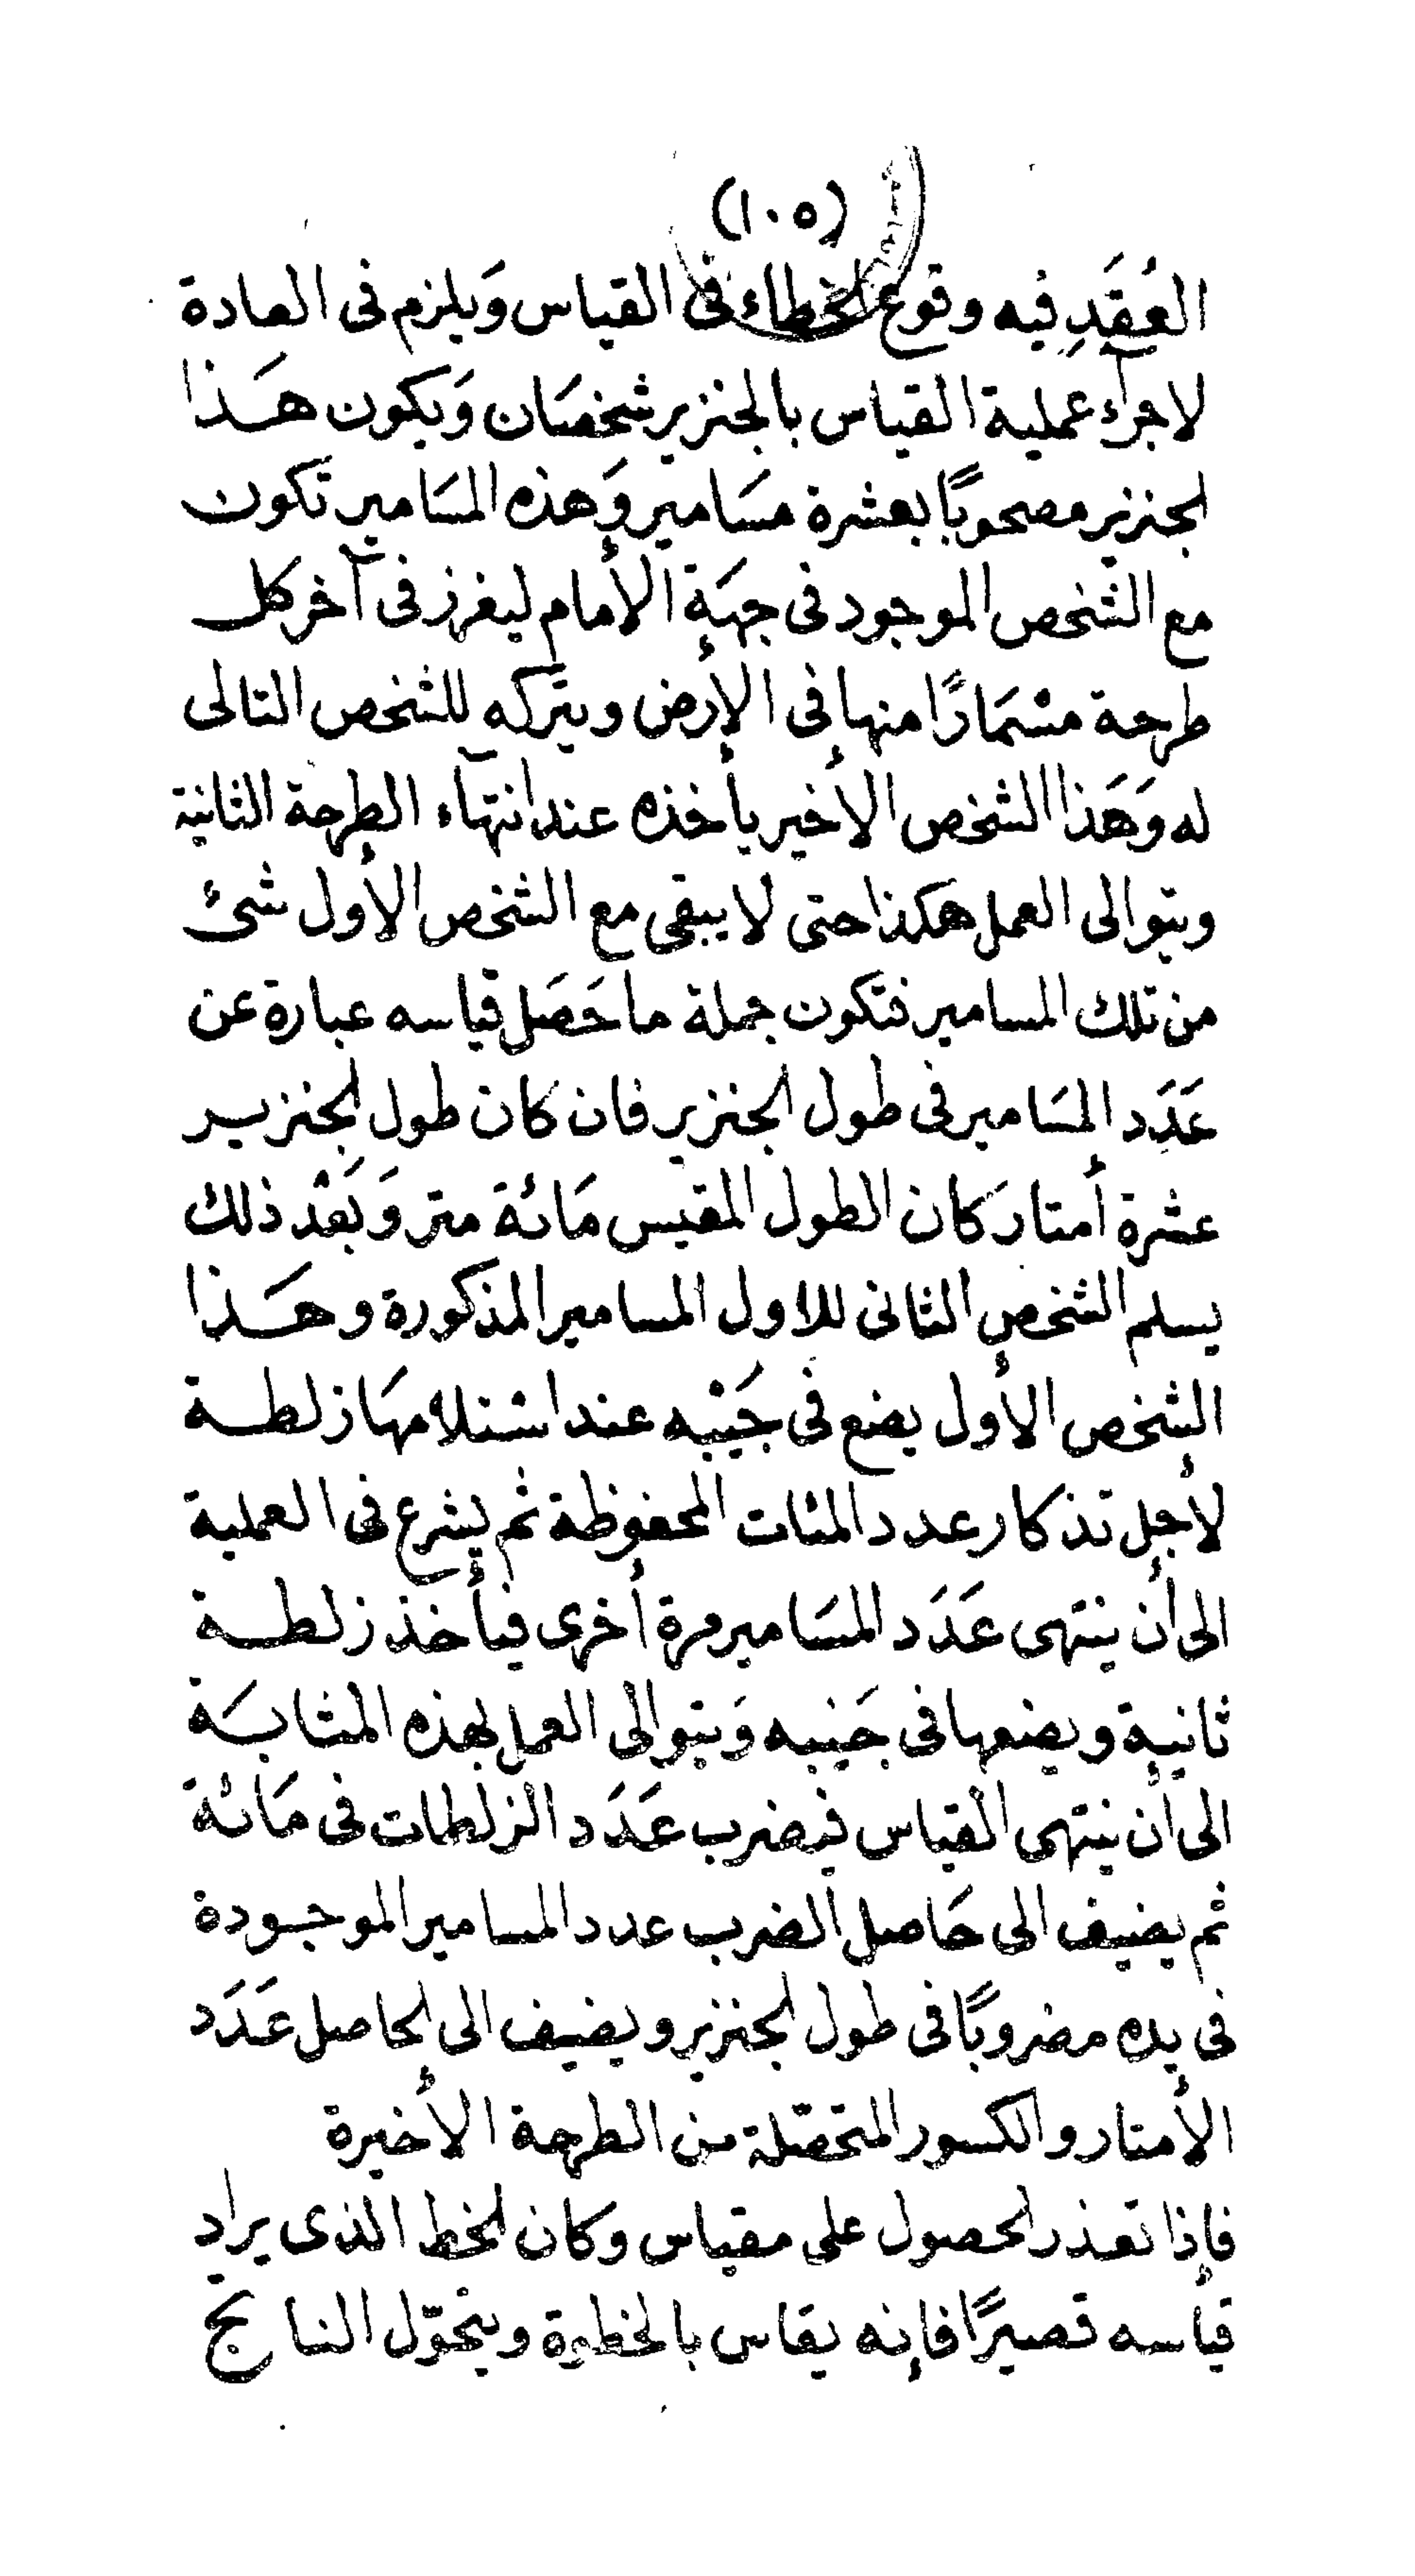 (١٠٥)
العُقَدِ فيه وقوع الخطاء فى القياس وَيلزم فى العادة
لاجرآء عملية القياس بالجنزير شخصَان وَيكون هَذا
الجنزير مصحوبًا بعشرة مسَامير وَهذه المسَامير تكون
مع الشخص الموجود فى جهَة الأمام ليغرز فى آخر كل
طرحة مسْمَارًا منها فى الأرض ويتركه للشخص التالى
له وَهَذا الشخص الأخير يأخذه عند انتهآء الطرحة الثانية
ويتوالى العمل هكذا حتى لا يبقى مع الشخص الأول شئ
من تلك المسامير فتكون جملة ما حَصَل قياسه عبارة عن
عَدَد المسَامير فى طول الجنزير فان كان طول الجنزير
عشرة أمتار كان الطول المقيس مَائة متر وَبَعْد ذلك
يسلم الشخص الثانى للاول المسامير المذكورة وهَذا
الشخص الأول يضع فى جَيْبه عند استلامهَا زلطة
لأجل تذكار عدد المئات المحفوظة ثم يشرع فى العملية
الى أن ينتهى عَدَد المسَامير مرة أخرى فيأخذ زلطة
ثانية ويضعها فى جَيبه وَيتوالى العمل بهذه المثابَة
الى أن ينتهى القياس فيضرب عَدَد الزلطات فى مَائة
ثم يضيف الى حَاصل الضرب عدد المسامير الموجودة
فى يده مضروبًا فى طول الجنزير ويضيف الى الحاصل عَدَد
الأمتار والكسور المتحصّلة من الطرحة الأخيرة
فإذا تعذر الحصول على مقياس وكان الخط الذى يراد
قياسه قصيرًا فإنه يقاس بالخطوة ويتحوّل الناتج